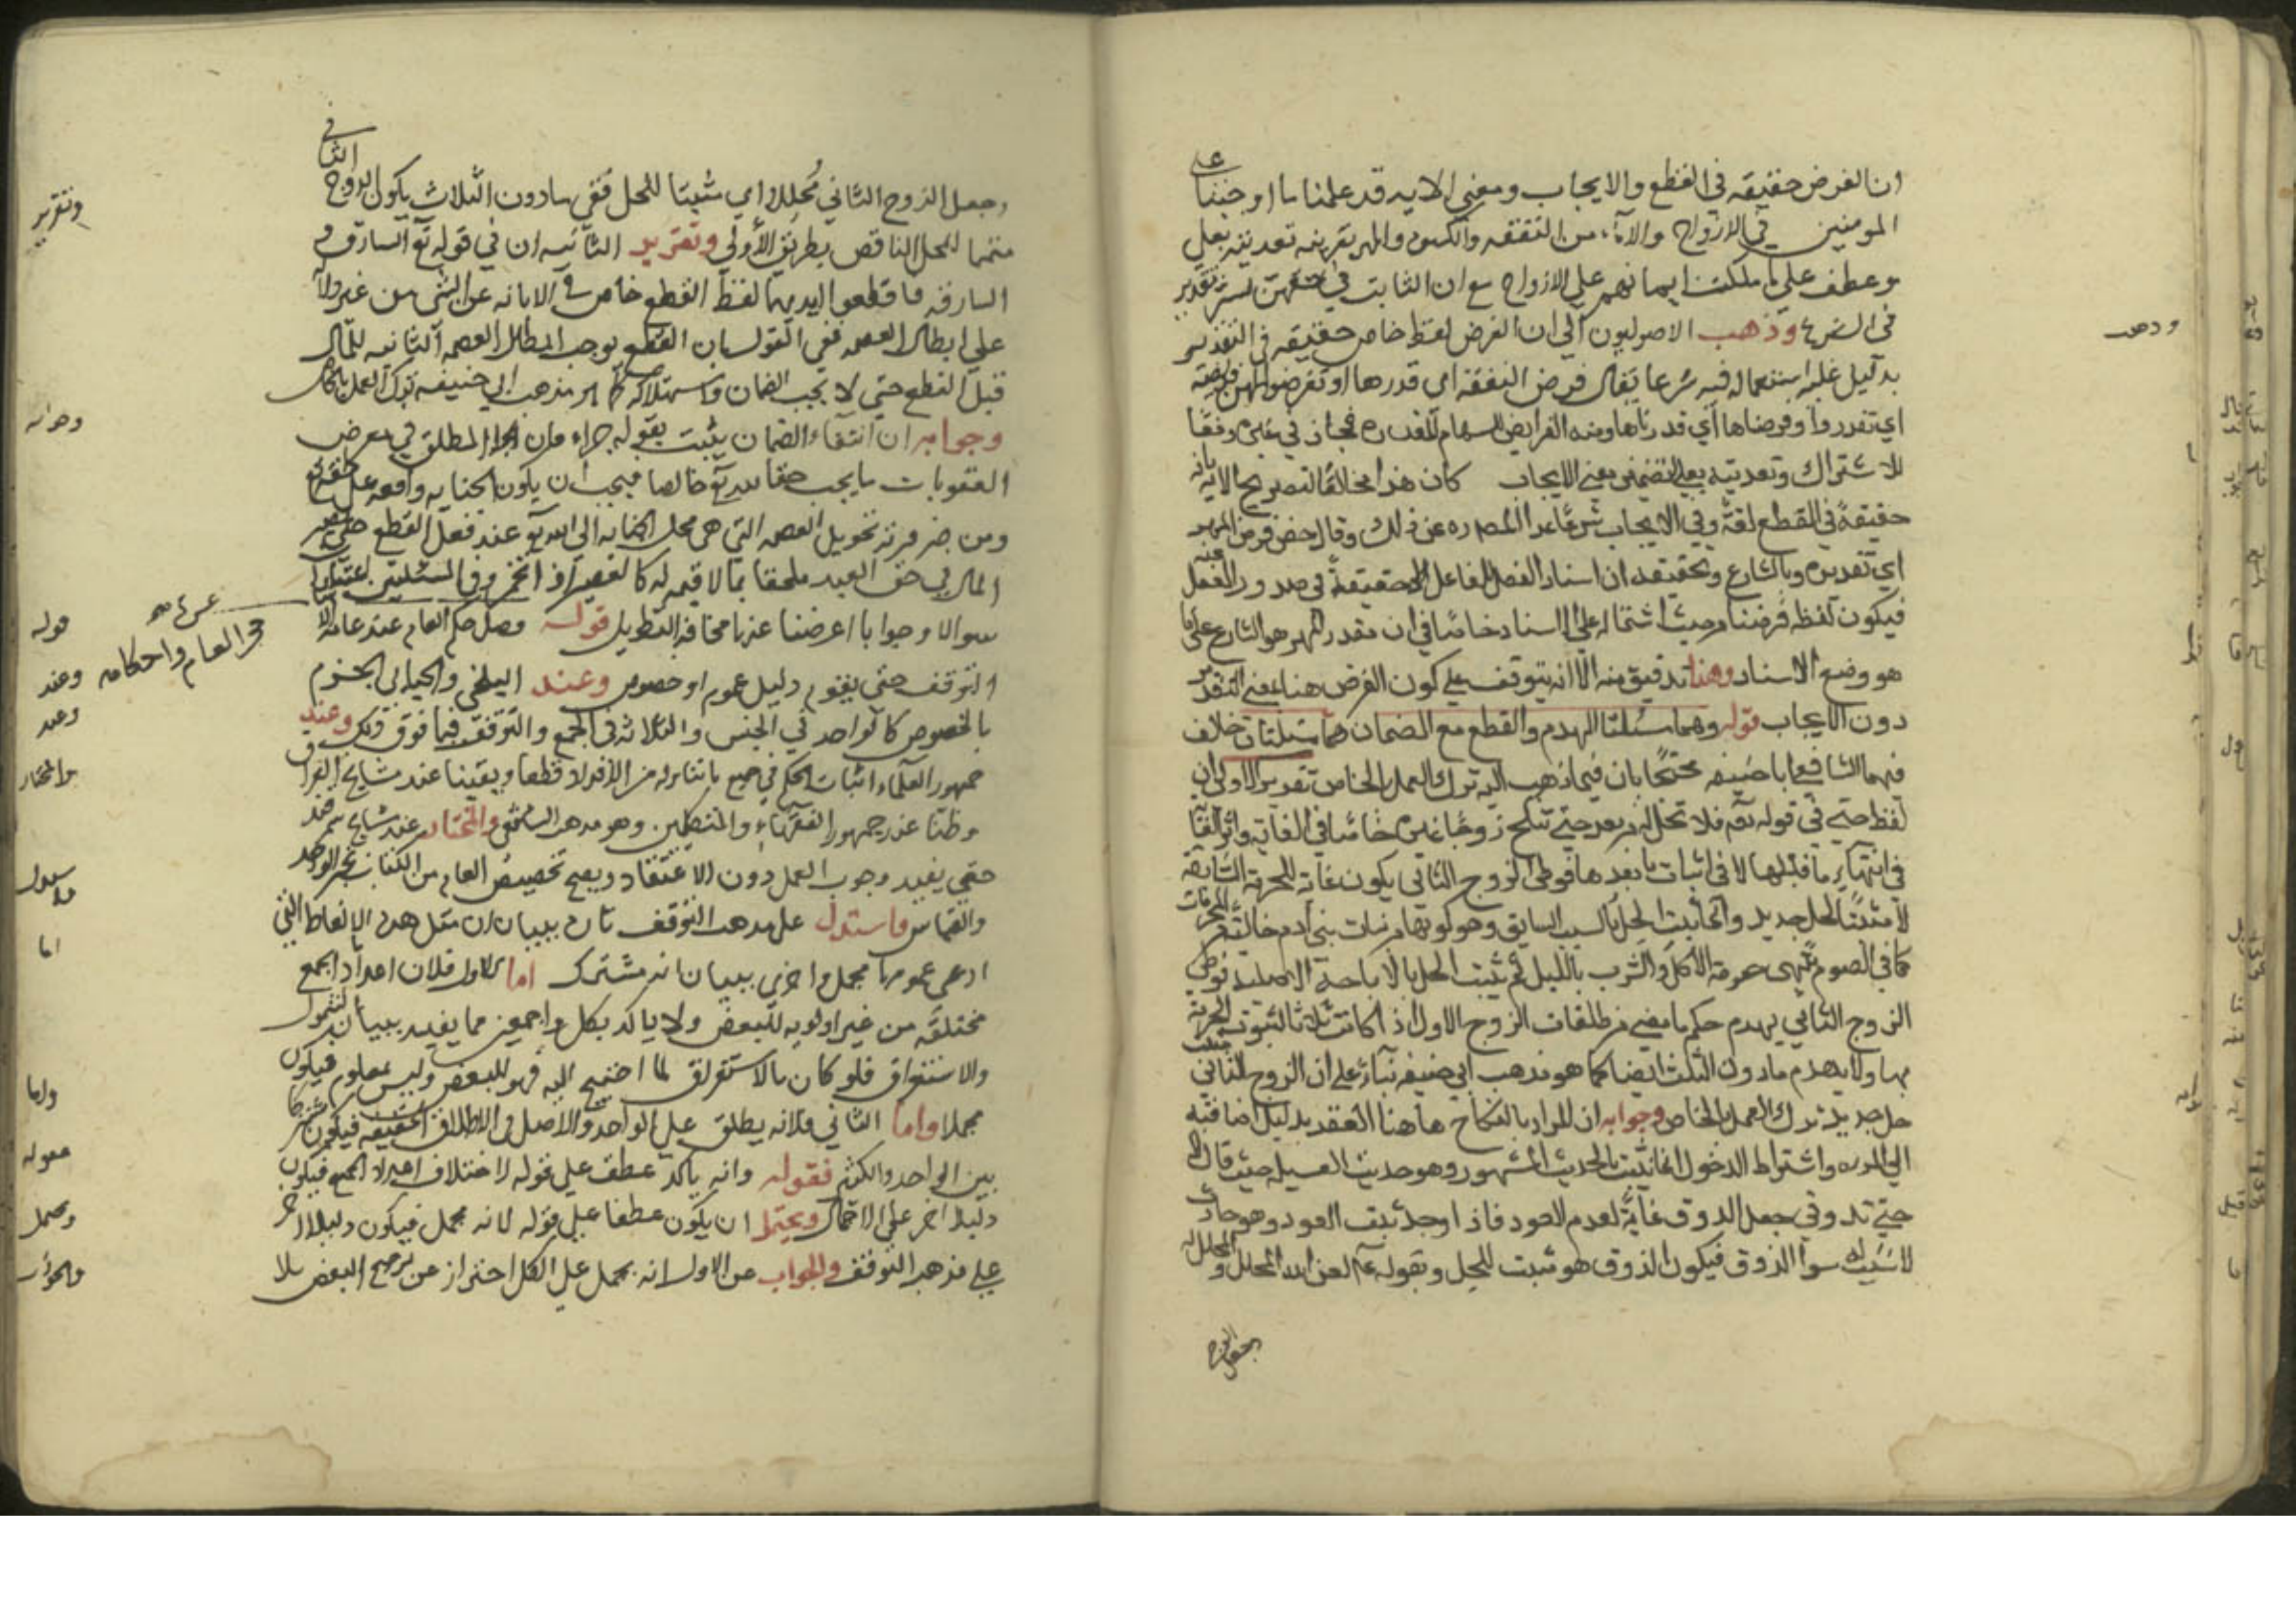 ان الفرض حقيقة في القطع والايجاب ومعنى الاية قد علمنا ما اوجبنا على
المومنين في الازواج والاماء من النفقة والكسوة والمهر بقرينة تعديته بعلى
وعطف على ما ملكت ايمانهم على الازواج مع ان الثابت في حقهن ليس بمقدر
في الشرع وذهب الاصوليون الى ان الفرض لفظ خاص حقيقة في التقدير
بدليل غلبة استعماله فيه شرعا يقال فرض النفقة اى قدرها او تفرضوا لهن فريضة
اي تقدروا وفرضناها اي قدرناها ومنه الفرايض للسهام المقدرة مجاز في غيره دفعًا
للاشتراك وتعديته بعلى لتضمين معنى الايجاب كان هذا مخالفا لتصريح الايمة بانه
حقيقةً في القطع لغةً وفي الايجاب شرعًا عدل المص ره عن ذلك وقال خص فرض المهر
اي تقديره بالشارع وتحقيقه ان اسناد الفعل الى الفاعل حقيقةً في صدور الفعل عنه
فيكون لفظ فرضنا من حيث اشتماله على الاسناد خاصًا في ان مقدر المهر هو الشارع على ما
هو وضع الاسناد وهذا تدقيق منه الا انه يتوقف على كون الفرض هنا بمعنى التقدير
دون الايجاب قوله وهما مسئلتا الهدم والقطع مع الضمان هما مسئلتان خالف
فيهما الشافعي ابا حنيفة محتجًا بان فيما ذهب اليه ترك العمل بالخاص تقدير الاولى ان
لفظ حتى في قوله تع فلا تحل له من بعد حتى تنكح زوجًا غيره خاص في الغاية واثر الغاية
في انتهاء ما قبلها لا في اثبات ما بعدها فوطئ الزوج الثاني يكون غاية للحرمة السابقة
لا مثبتًا لحل جديد وانما يثبت الحل بالسبب السابق وهو كونها من بنات بني ادم خالية عن المحرمات
كما في الصوم تنتهى حرمة الاكل والشرب بالليل ثم يثبت الحل بالاباحة الاصلية فوطئ
الزوج الثاني يهدم حكم ما مضى من طلقات الزوج الاول اذا كانت ثلاثا لثبوت الحرمة
بها ولا يهدم ما دون الثلث ايضا كما هو مذهب ابي حنيفة بناءً على ان الزوج الثاني مثبت
حل جديد ترك العمل بالخاص وجوابه ان المراد بالنكاح هاهنا العقد بدليل اضافته
الى المراة واشتراط الدخول انما يثبت بالحديث المشهور وهو حديث العسيلة حيث قال لا
حتى تذوقي جعل الذوق غايةً لعدم العود فاذا وجد ثبت العود وهو حادث
لا سبب له سوا الذوق فيكون الذوق هو مثبت للحل وبقوله عم لعن الله المحلل والمحلل له
وجعل الزوج الثاني محللا اي مثبتا للحل ففي ما دون الثلاث يكون الزوج الثاني
متمما للحل الناقص بطريق الأولى وتقرير الثانية ان في قوله تع السارق و
السارقة فاقطعوا ايديهما لفظ القطع خاص في الابانة عن الشى من غير دلالة
على ابطال العصمة ففي القول بان القطع يوجب ابطال العصمة الثابتة للمال
قبل القطع حتى لا يجب الضمان واستهلاكه كما هو مذهب ابي حنيفة ترك العمل بالخاص
وجوابه ان انتفاء الضمان يثبت بقوله جزاء فان الجزا المطلق في معرض
العقوبات ما يجب حقا لله تع خالصا فيجب ان يكون الجناية واقعة على حقه تع
ومن ضرورته تحويل العصمة التي هي محل الجناية الى الله تع عند فعل القطع حتى يصير
المال في حق العبد ملحقا بما لا قيمة له كالعصير اذا تخمر وفي المسئلتين
سوالا وجوابا اعرضنا عنها مخافة التطويل قوله فصل حكم العام عند عامة
التوقف حتى يقوم دليل عموم او خصوص وعند البلخي والجبائي الجزم
بالخصوص كالواحد في الجنس والثلاثة في الجمع والتوقف فيما فوق ذلك وعند
جمهور العلماء اثبات الحكم في جميع ما يتناوله من الافراد قطعا ويقينا عند مشايخ العراق
وظنا عند جمهور الفقهاء والمتكلمين وهو مذهب الشافعي والمختار عند مشايخ سمرقند
حتى يفيد وجوب العمل دون الاعتقاد ويصح تخصيص العام من الكتاب بخبر الواحد
والقياس فاستدل على مذهب التوقف تارة ببيان ان مثل هذه الالفاظ التي
ادعى عمومها مجمل واخرى ببيان انه مشترك اما الاول فلان اعداد الجمع
مختلفة من غير اولوية للبعض ولا ياكد بكل واجمعين مما يفيد بيان الشمول
والاستغراق فلو كان بالاستغراق لما احتيج اليه فهو للبعض وليس بمعلوم فيكون
مجملا واما الثاني فلانه يطلق على الواحد والاصل في الاطلاق الحقيقة فيكون مشتركا
بين الواحد والكثير فقوله وانه ياكد عطف على قوله لاختلاف اعداد الجمع فيكون
دليلا اخر على الاجمال ويحتمل ان يكون عطفا على قوله لانه مجمل فيكون دليلا اخر
على مذهب التوقف والجواب عن الاول انه يحمل على الكل احترازا عن ترجيح البعض بلا
وتقرير
وجوابه
العام واحكامه
قوله
وعند
وعند
والمختار
فاستدل
اما
واما
فقوله
ويحتمل
والجواب
وذهب